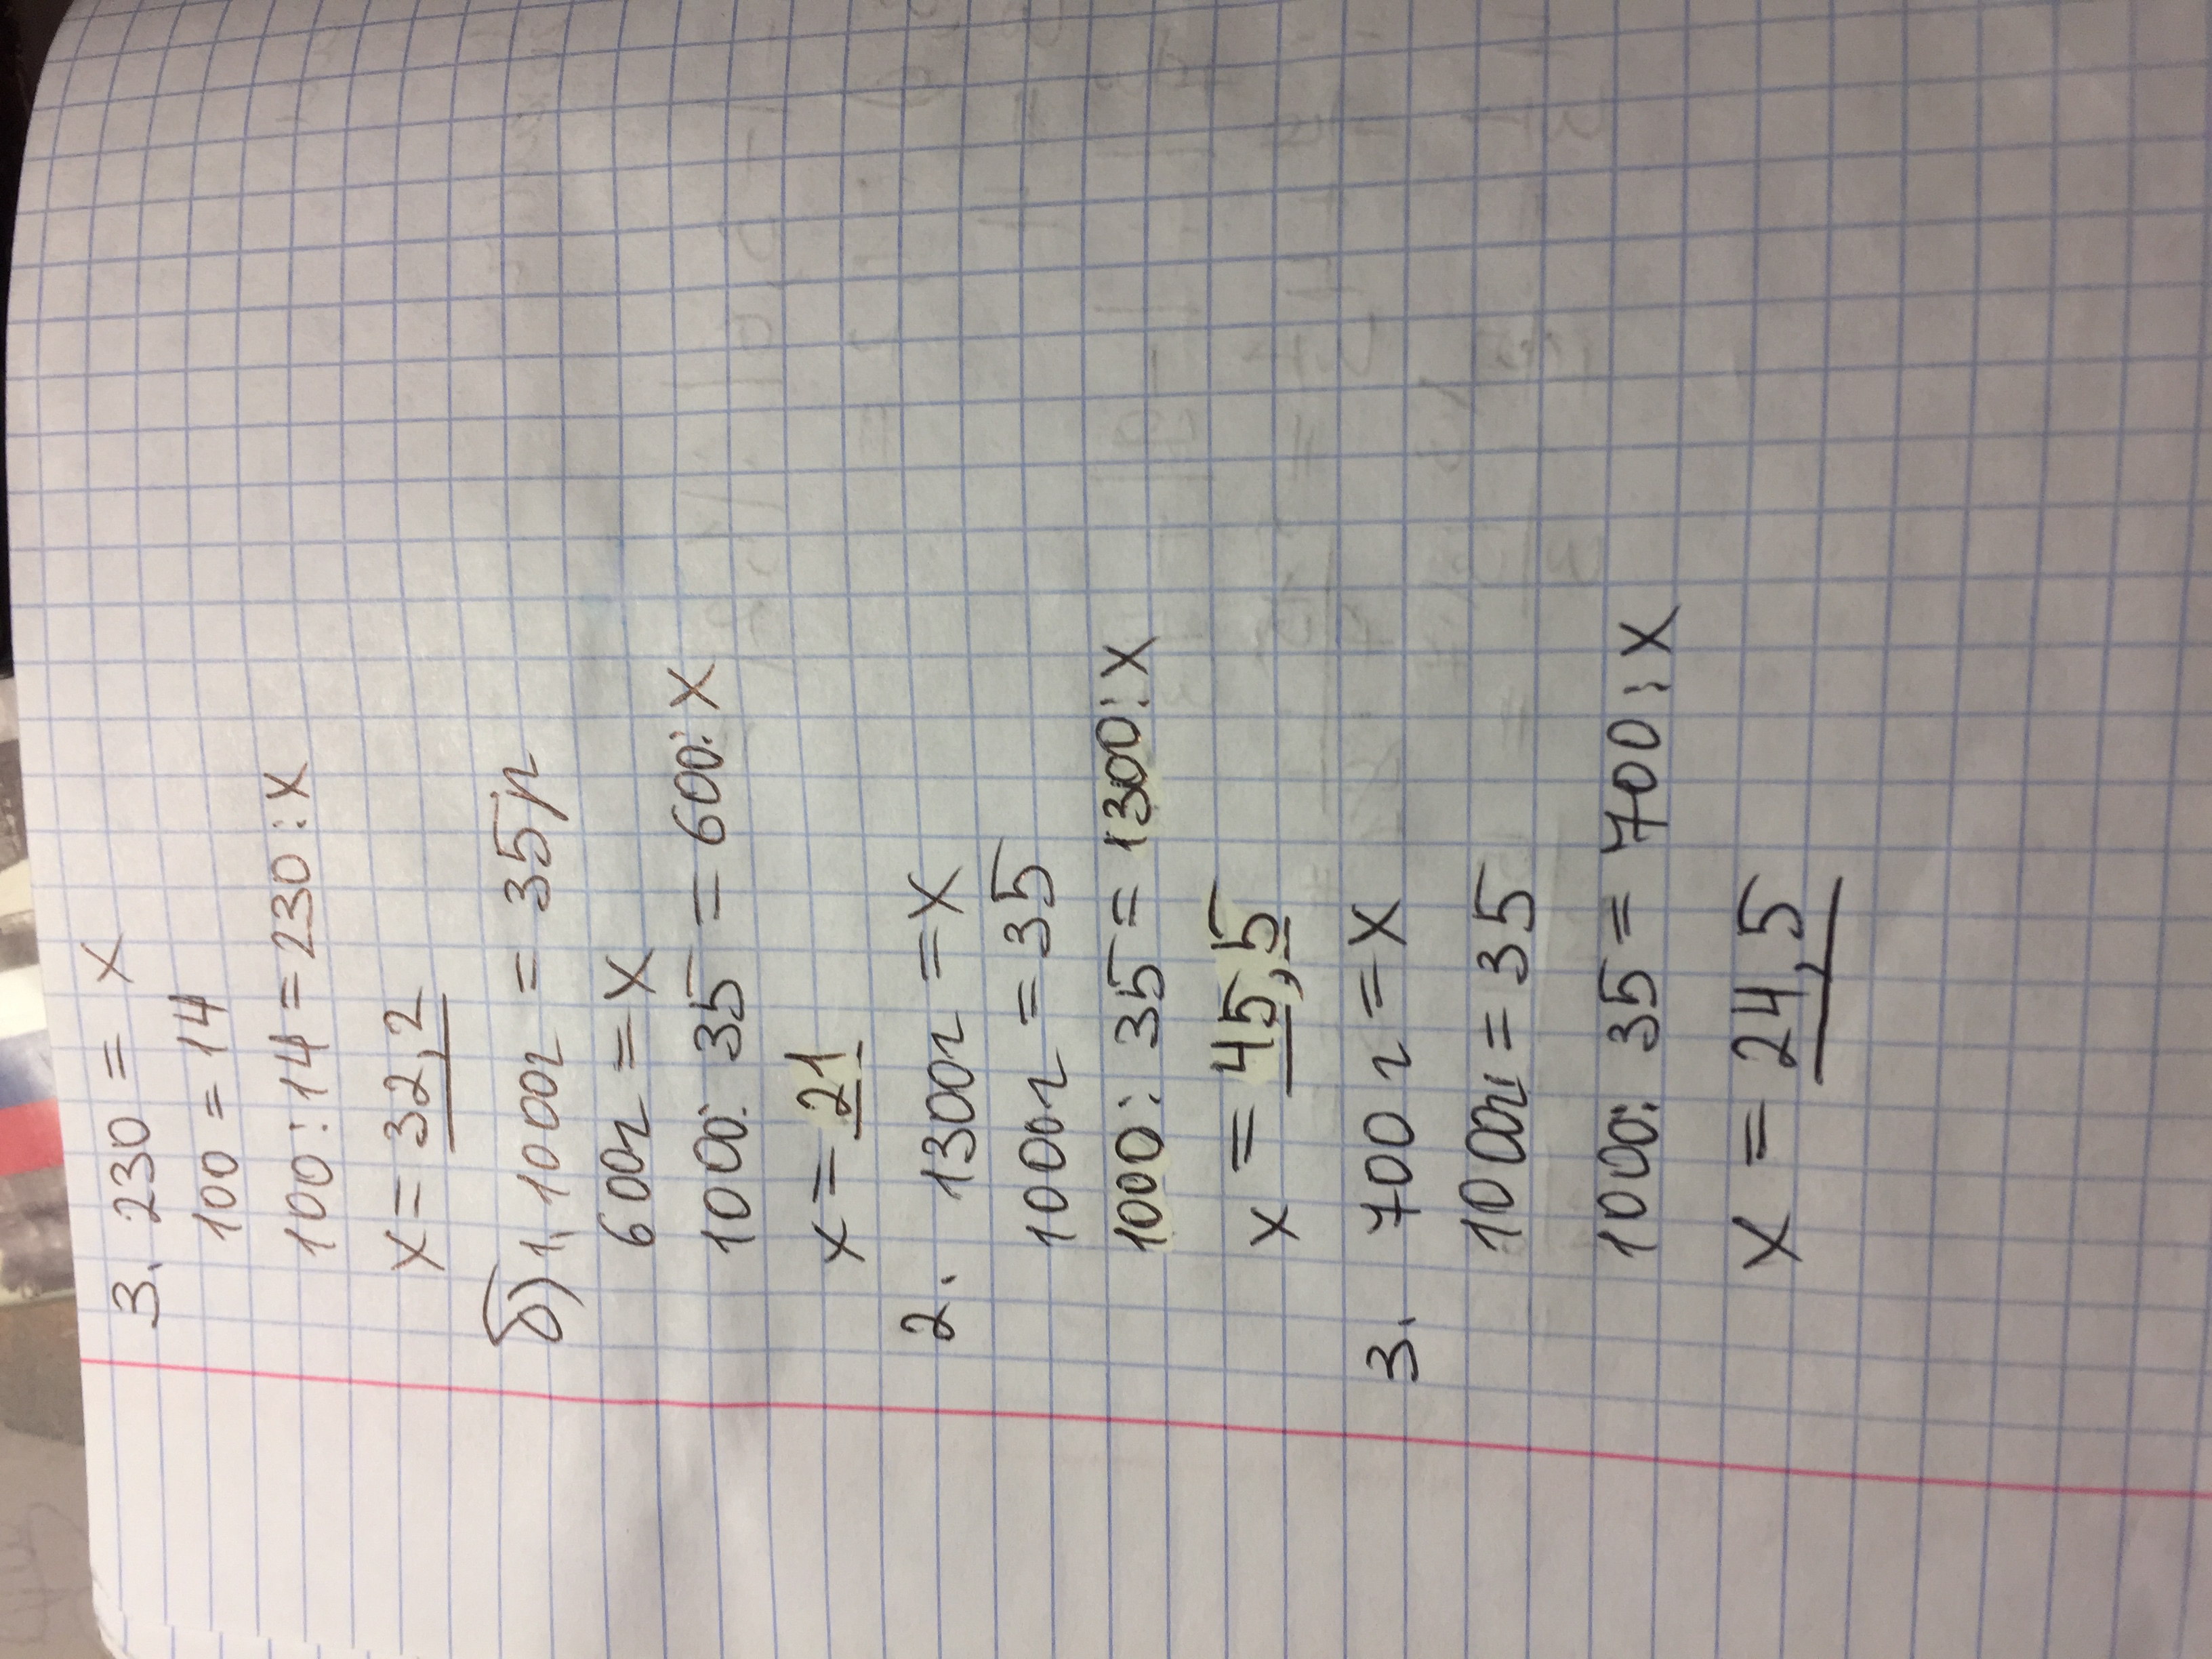 3. 230 = x
100 = 14
100 : 14 = 230 : x
x = 32,2
б) 1. 1000г = 35р
600г = x
1000 : 35 = 600 : x
x = 21
2. 1300г = x
1000г = 35
1000 : 35 = 1300 : x
x = 45,5
3. 700г = x
1000г = 35
1000 : 35 = 700 : x
x = 24,5